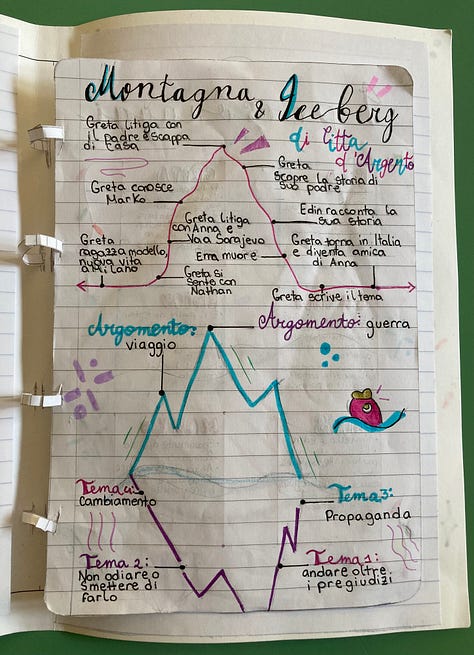 Montagna & Iceberg
di Città
d'Argento
Greta litiga con
il padre e scappa
di casa
Greta
scopre la storia di
suo padre
Greta conosce
Marko
Edin racconta la
sua storia
Greta litiga
con Anna e
va a Sarajevo
Greta
ragazza modello,
nuova vita
a Milano
Ema muore
Greta torna in Italia
e diventa amica
di Anna
Greta si
sente con
Nathan
Greta scrive il tema
Argomento:
viaggio
Argomento: guerra
Tema4:
Cambiamento
Tema3:
Propaganda
Tema 2:
Non odiare o
smettere di
farlo
Tema 1:
andare oltre
i pregiudizi